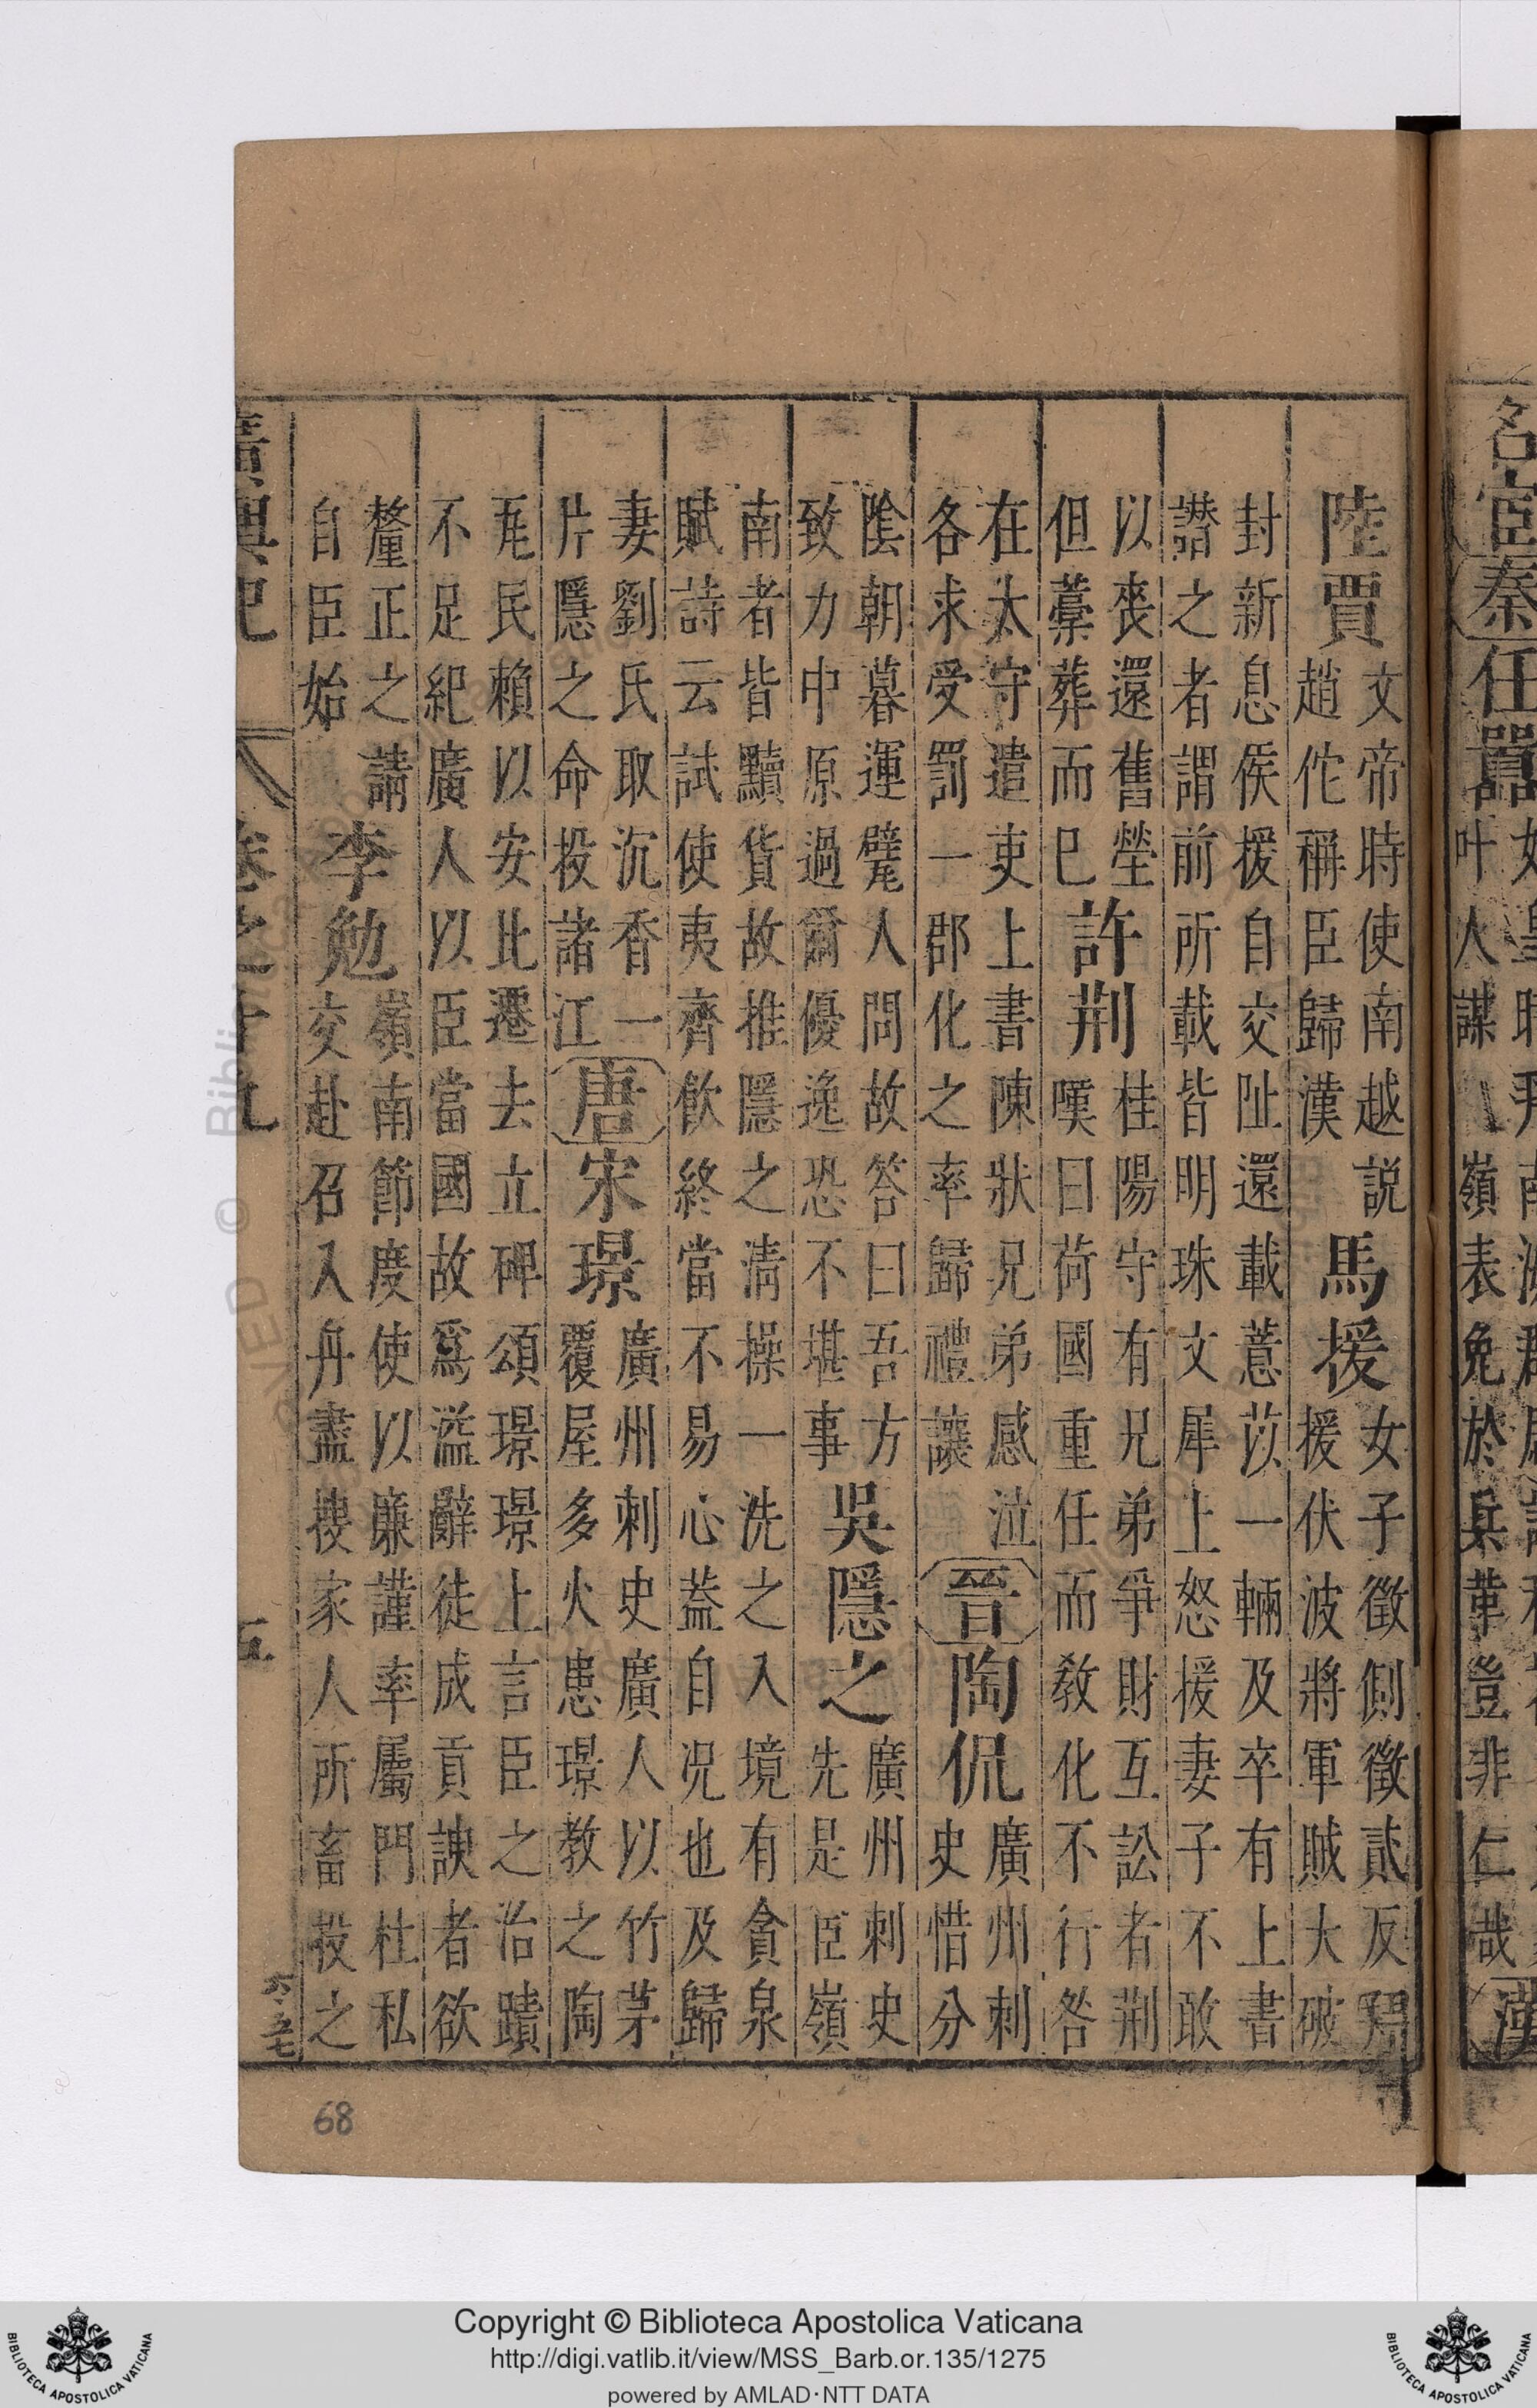 名宦秦任囂
叶人謀 嶺表免於兵革豈非仁哉漢
陸賈
文帝時使南越説
趙佗稱臣歸漢
馬援
女子徵側徵貳反
援伏波將軍賊大破
封新息侯援自交阯還載薏苡一輛及卒有上書
譛之者謂前所載皆明珠文犀上怒援妻子不敢
以喪還舊塋
但藁葬而已
許荆
桂陽守有兄弟爭財互訟者荆
嘆曰荷國重任而敎化不行咎
在太守遣吏上書陳狀兄弟感泣
各求受罰一郡化之率歸禮讓
晉陶侃
廣州刺
史惜分
陰朝暮運甓人問故答曰吾方
致力中原過爾優逸恐不堪事
吳隱之
廣州刺史
先是嶺
南者皆黷貨故推隱之清操一洗之入境有貪泉
賦詩云試使夷齊飲終當不易心蓋自况也及歸
妻劉氏取沉香一
片隱之命投諸江
唐宋璟
廣州刺史廣人以竹茅
覆屋多火患璟教之陶
瓦民賴以安比遷去立碑頌璟璟上言臣之治蹟
不足紀廣人以臣當國故爲溢辭徒成貢諛者欲
釐正之請
自臣始
李勉
嶺南節度使以廉謹率屬門杜私
交赴召入舟盡搜家人所畜投之
廣輿記 卷之十九 五
68
Copyright © Biblioteca Apostolica Vaticana
http://digi.vatlib.it/view/MSS_Barb.or.135/1275
powered by AMLAD·NTT DATA
BIBLIOTECA APOSTOLICA VATICANA
BIBLIOTECA APOSTOLICA VATICANA